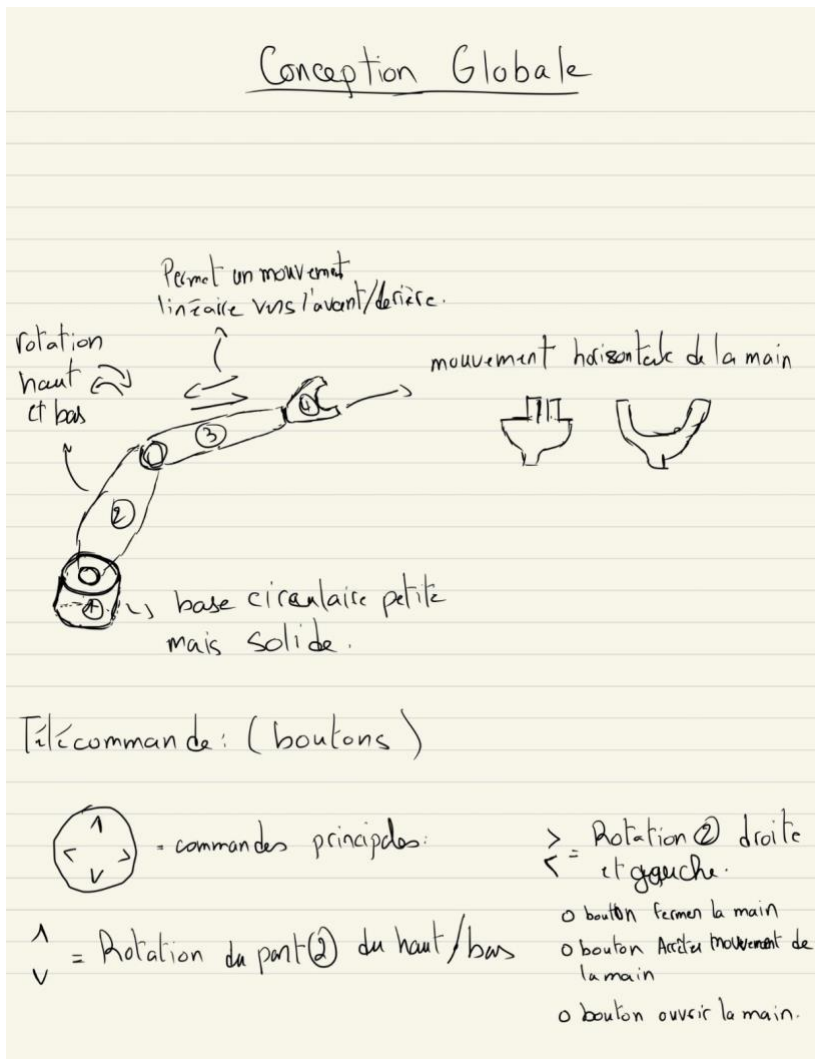 Conception Globale
Permet un mouvemet
linéaire vers l'avant/derière.
rotation
haut
et bas
mouvement horisontale de la main
4
3
2
1
base circulaire petite
mais solide.
Télécommande: (boutons)
^
< >
v
= commandes principales:
^
v
= Rotation du part ② du haut/bas
>
<
= Rotation ② droite
et gauche.
o bouton fermer la main
o bouton Arrêter mouvement de
la main
o bouton ouvrir la main.